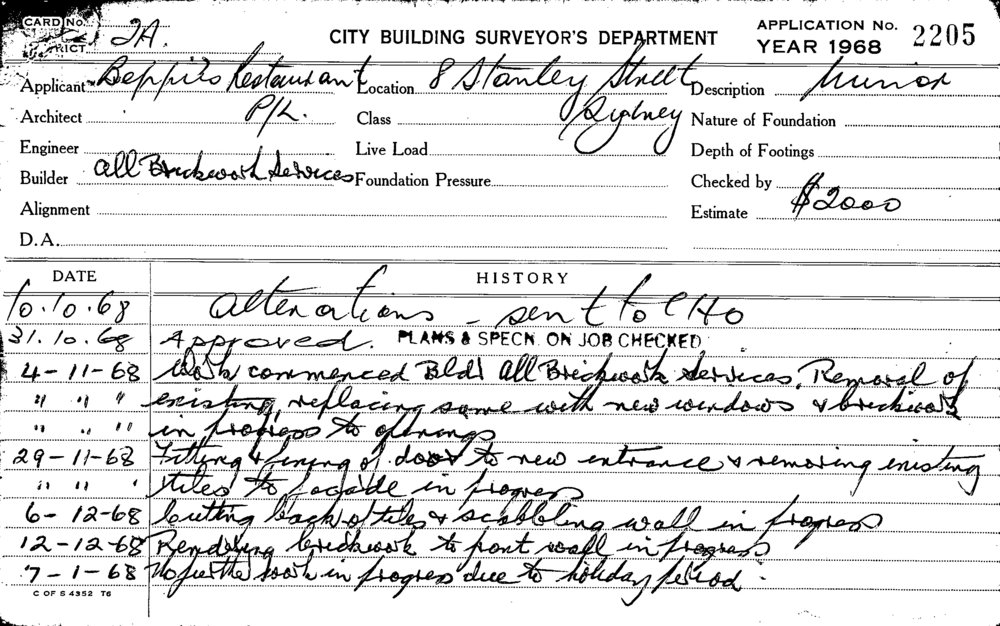 CARD No. 2A.
DISTRICT
CITY BUILDING SURVEYOR'S DEPARTMENT
APPLICATION No. 2205
YEAR 1968
Applicant Beppi's Restaurant Location 8 Stanley Street Description Minor
Architect P/L. Class Sydney Nature of Foundation
Engineer Live Load Depth of Footings
Builder All Brickwork Services Foundation Pressure Checked by
Alignment Estimate $2000
D.A.
DATE HISTORY
10.10.68 Alterations - sent to CHO
31.10.68 Approved. PLANS & SPECN. ON JOB CHECKED
4-11-68 Work commenced Bldr All Brickwork Services. Removal of
" " " existing, replacing same with new windows & brickwork
" " " in progress to openings
29-11-68 Fitting & fixing of door to new entrance & removing existing
" " " tiles to facade in progress
6-12-68 Cutting back of tiles & scabbling wall in progress
12-12-68 Rendering brickwork to front wall in progress
7-1-68 No further work in progress due to holiday period.
C OF S 4352 T6